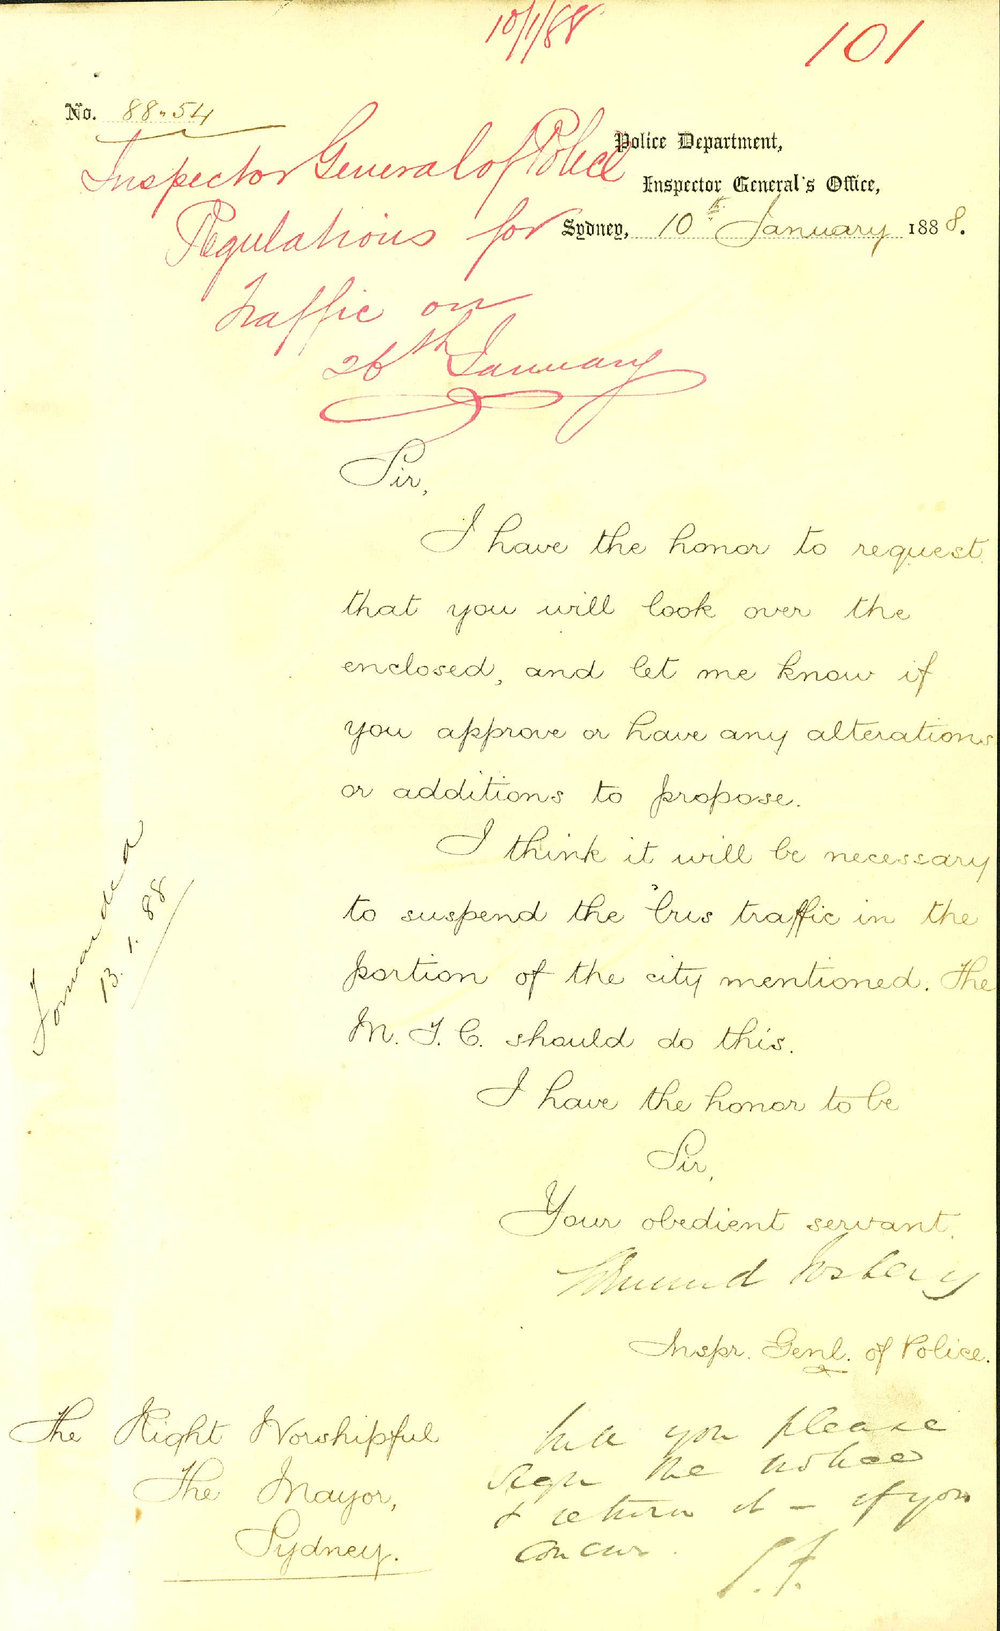 10/1/88
101
No. 88-54
Police Department,
Inspector General's Office,
Sydney, 10th January 1888.
Inspector General of Police
Regulations for
Traffic on
26th January
Sir,
I have the honor to request
that you will look over the
enclosed, and let me know if
you approve or have any alterations
or additions to propose.
I think it will be necessary
to suspend the 'bus traffic in the
portion of the city mentioned. The
M. T. C. should do this.
I have the honor to be
Sir,
Your obedient servant.
Edmund Fosbery
Inspr. Genl. of Police.
Forwarded
13.1.88
The Right Worshipful
The Mayor,
Sydney.
Will you please
sign the notice
& return it - if you
concur.
E.F.